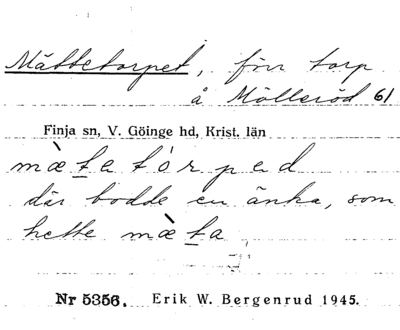 Mättetorpet, förr torp
å Mölleröd 61
Finja sn, V. Göinge hd, Krist. län
mæ̀tatórpəd
där bodde en änka, som
hette mæ̀ta
Nr 5356. Erik W. Bergenrud 1945.